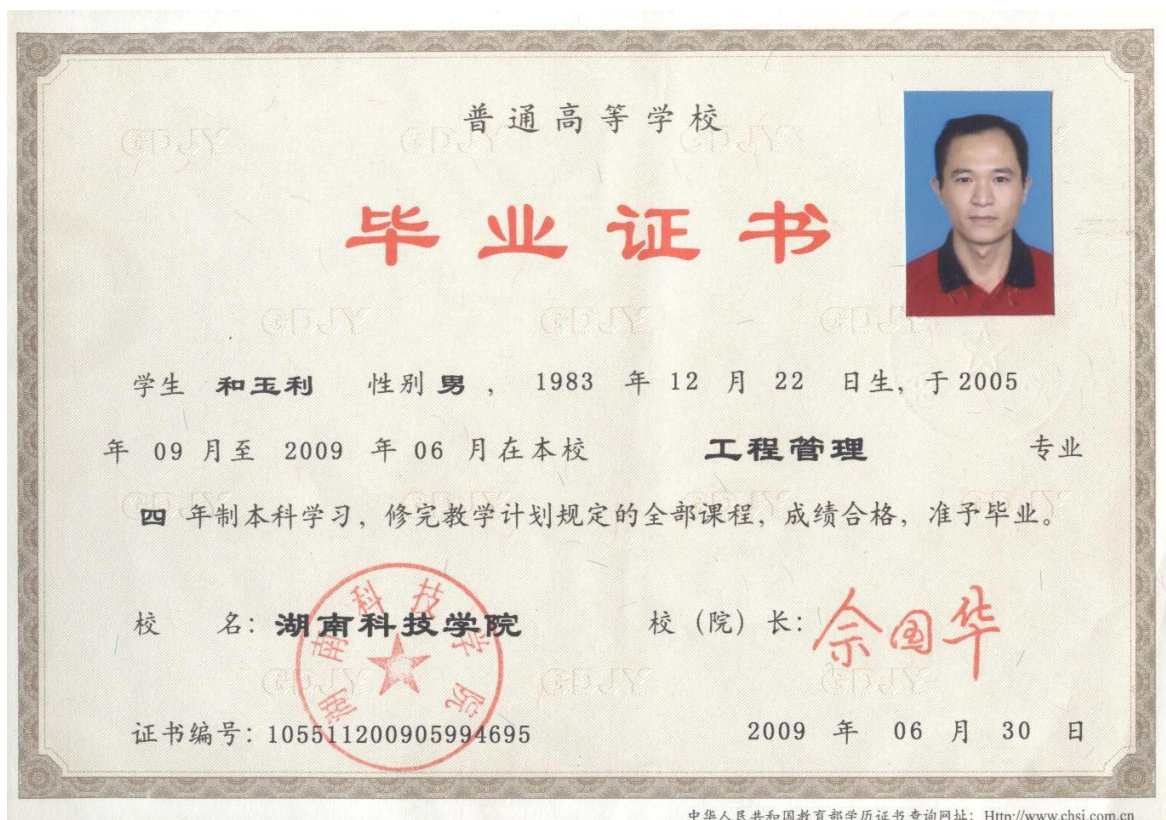 普通高等学校
毕业证书
学生 和玉利 性别 男 , 1983 年 12 月 22 日生, 于 2005
年 09 月至 2009 年 06 月在本校 工程管理 专业
四 年制本科学习, 修完教学计划规定的全部课程, 成绩合格, 准予毕业。
校 名: 湖南科技学院 校 (院) 长: 佘国华
湖南科技学院
证书编号: 105511200905994695 2009 年 06 月 30 日
中华人民共和国教育部学历证书查询网址: Http://www.chsi.com.cn